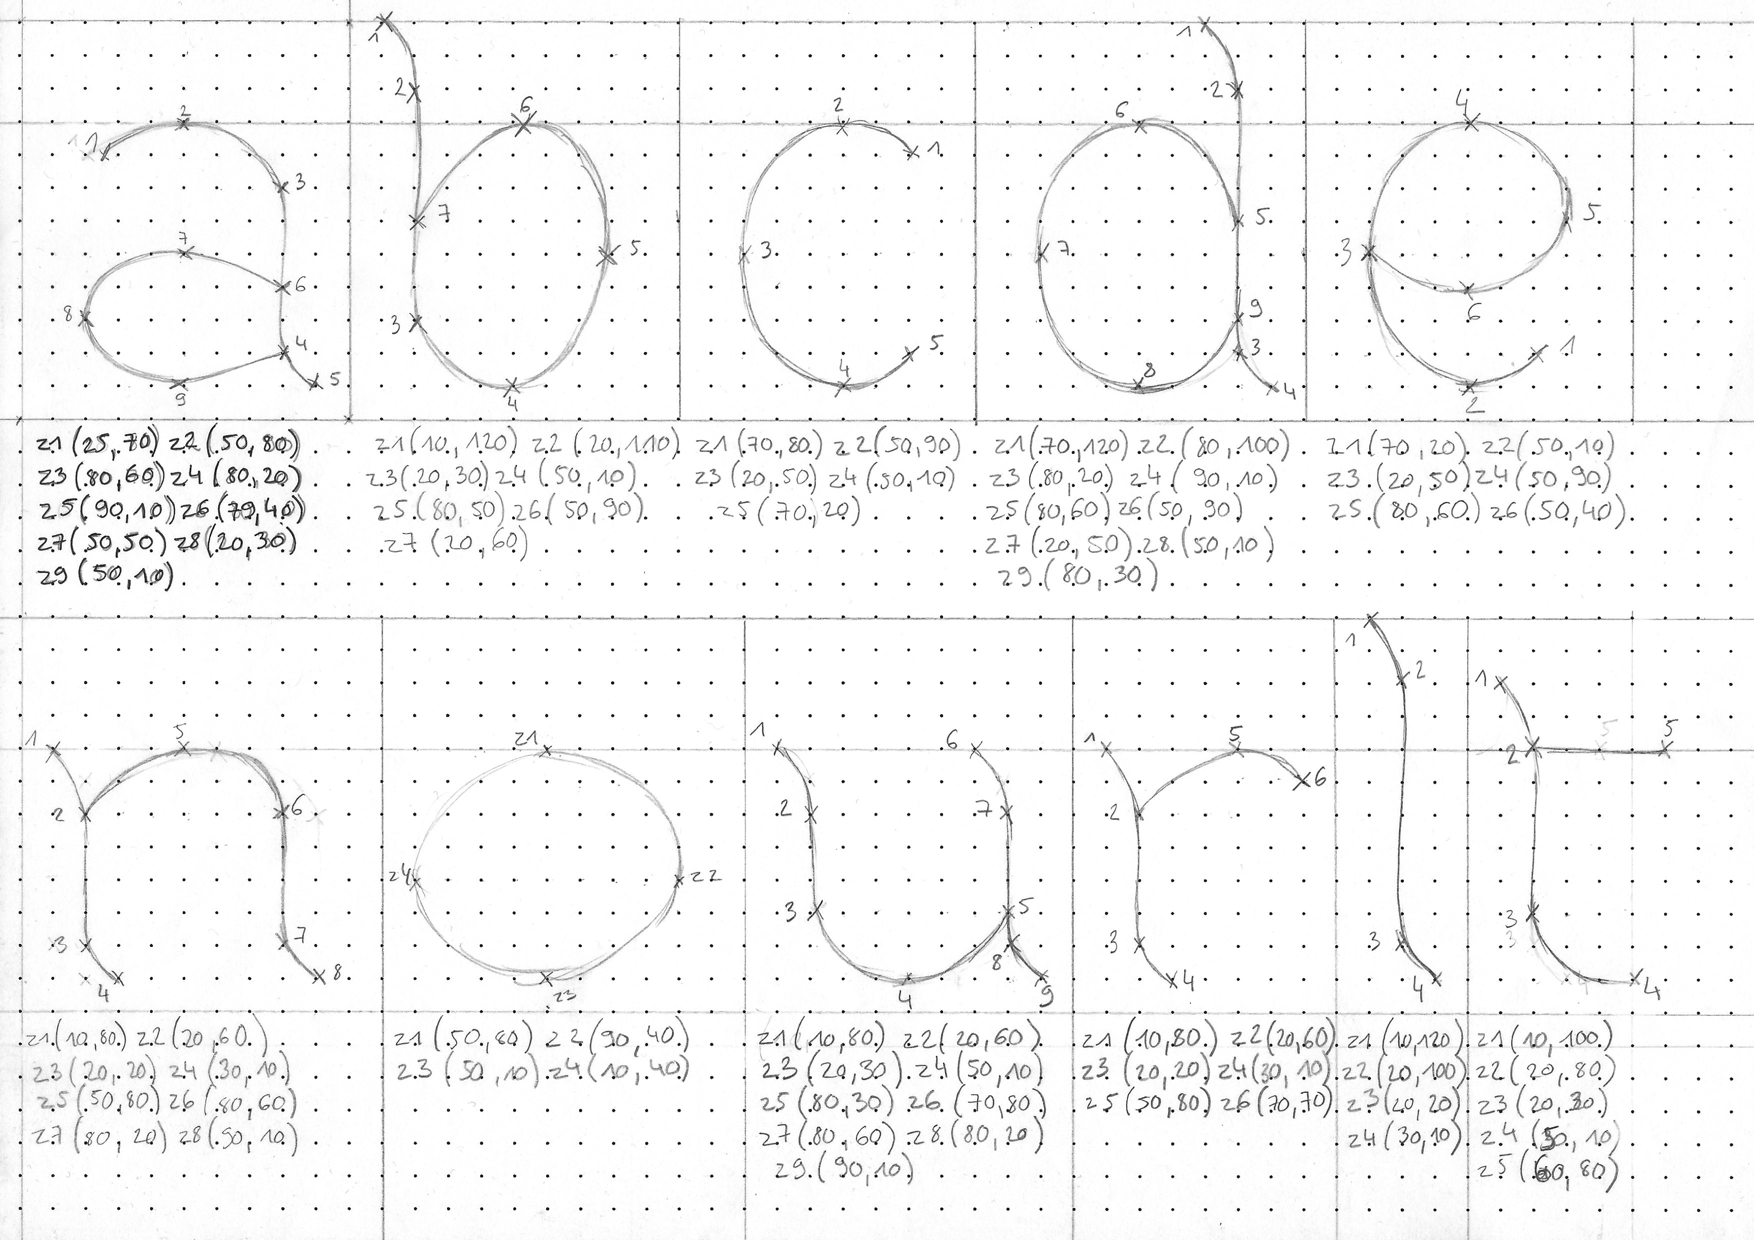 z1 (25,70) z2 (50,80)
z3 (80,60) z4 (80,20)
z5 (90,10) z6 (79,40)
z7 (50,50) z8 (20,30)
z9 (50,10)
z1 (10,120) z2 (20,110)
z3 (20,30) z4 (50,10)
z5 (80,50) z6 (50,90)
z7 (20,60)
z1 (70,80) z2 (50,90)
z3 (20,50) z4 (50,10)
z5 (70,20)
z1 (70,120) z2 (80,100)
z3 (80,20) z4 (90,10)
z5 (80,60) z6 (50,90)
z7 (20,50) z8 (50,10)
z9 (80,30)
z1 (70,20) z2 (50,10)
z3 (20,50) z4 (50,90)
z5 (80,60) z6 (50,40)
z1 (10,80) z2 (20,60)
z3 (20,20) z4 (30,10)
z5 (50,80) z6 (80,60)
z7 (80,20) z8 (90,10)
z1 (50,80) z2 (90,40)
z3 (50,10) z4 (10,40)
z1 (10,80) z2 (20,60)
z3 (20,30) z4 (50,10)
z5 (80,30) z6 (70,80)
z7 (80,60) z8 (80,20)
z9 (90,10)
z1 (10,80) z2 (20,60)
z3 (20,20) z4 (30,10)
z5 (50,80) z6 (70,70)
z1 (10,120)
z2 (20,100)
z3 (20,20)
z4 (30,10)
z1 (10,100)
z2 (20,80)
z3 (20,30)
z4 (50,10)
z5 (60,80)